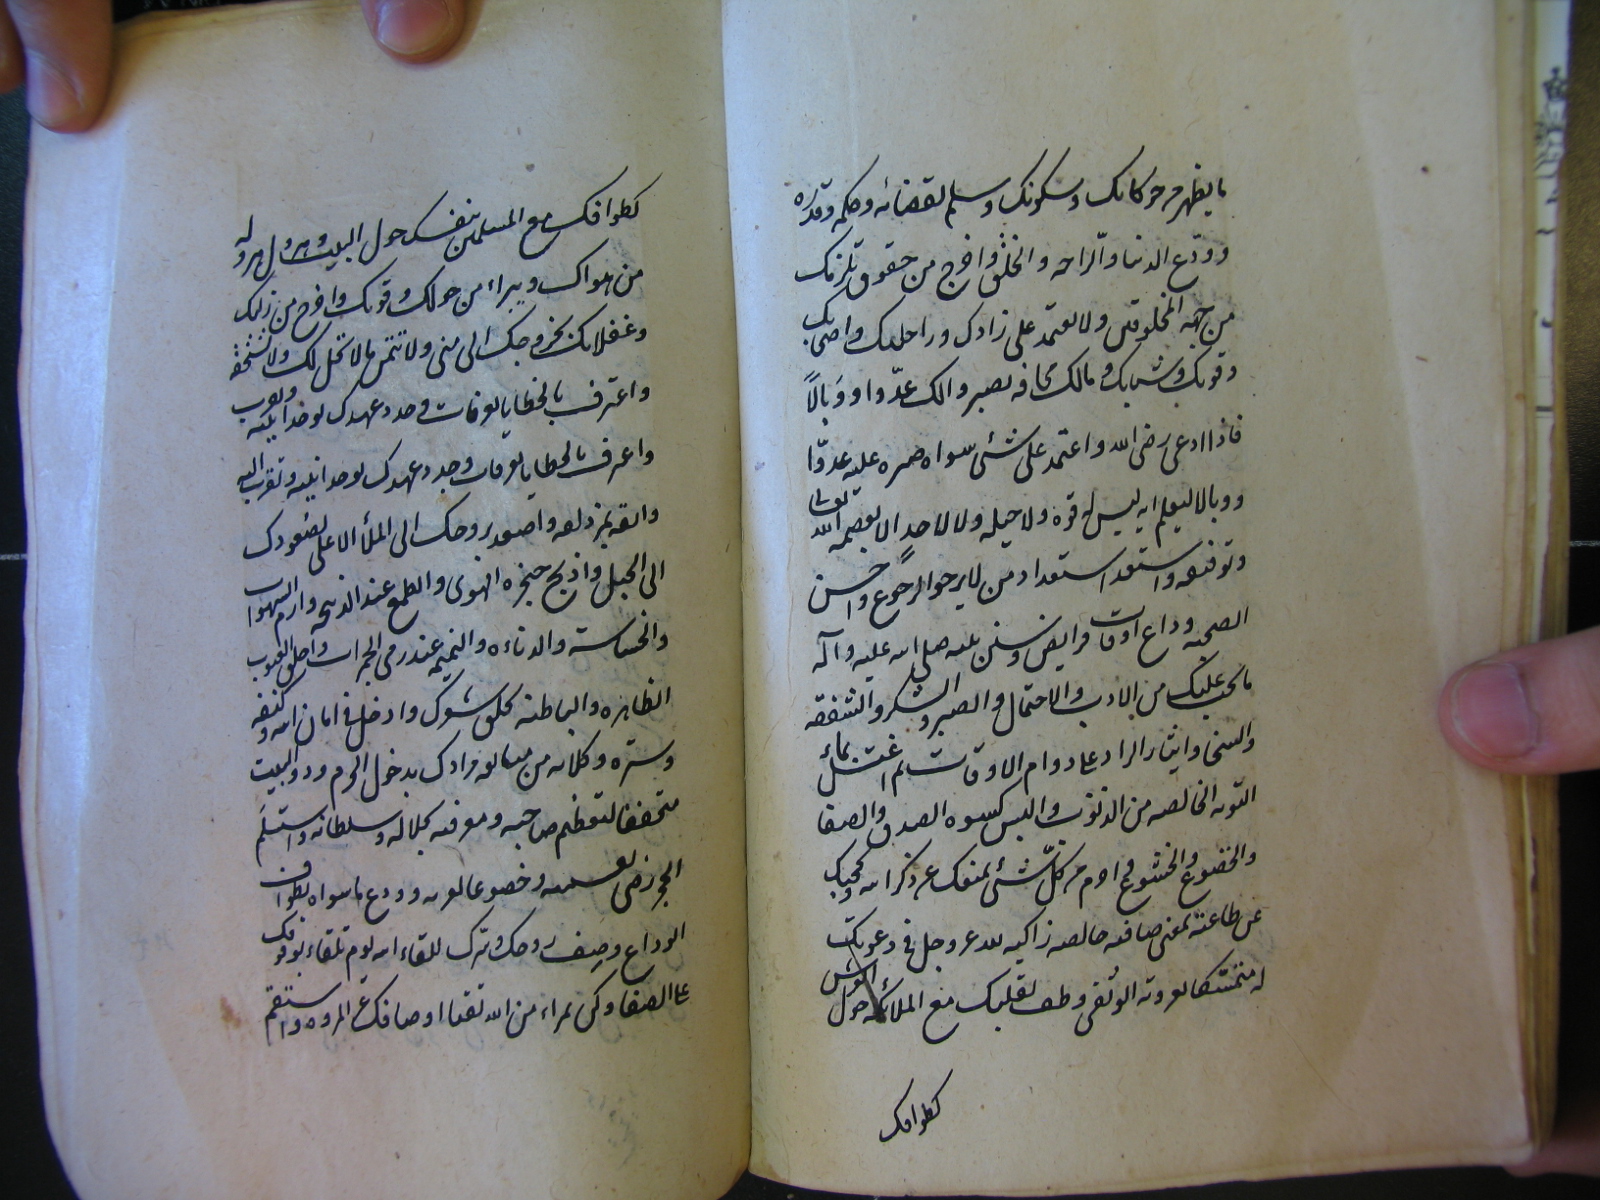 ما يظهر من حركاتك وسكونك وسلم لقضائه وحكمه وقدره
وودع الدنيا والراحه والخلق واخرج من حقوق تلزمك
من جهه المخلوقين ولا تعتمد على زادك وراحلتك واصحابك
وقوتك وشبابك ومالك مخافه يصير ذالك عدّوا ووَبالًا
فاذا ادعى رضى الله واعتمد على شئ سواه صيره عليه عدوّا
ووبالا ليعلم انه ليس له قوه ولا حيله ولا لاحد الا بعصمه الله تعالى
وتوفيقه واستعد استعداد من لا يرجو الرجوع واحسن
الصحبه وراع اوقات فرايض وسنن نبيه صلى الله عليه وآله
ما يجب عليك من الادب والاحتمال والصبر والشكر والشفقه
والسخى وايثار الزاد على دوام الاوقات ثم اغتسل بماء
التوبه الخالصه من الذنوب والبس كسوه الصدق والصفا
والخضوع والخشوع واحرم من كلّ شئ يمنعك عن ذكر الله ويحجبك
عن طاعته بمعنى صافيه خالصه زاكيه لله عز وجل في دعوتك
له متمسكا بالعروة الوثقى وطف بقلبك مع الملائكه حول العرش
كطوافك
كطوافك مع المسلمين بنفسك حول البيت وهرول هروله
من هواك وتبراء من حولك وقوتك واخرج من زلتك
وغفلاتك بخروجك الى منى ولا تتمن ما لا تحل لك ولا تستحقه
واعترف بالخطايا بعرفات وجدد عهدك بوحدانيته وتقرب
واعترف بالخطايا بعرفات وجدد عهدك بوحدانيته وتقرب اليه
واتقه بمزدلفه واصعد بروحك الى الملأ الاعلى بصعودك
الى الجبل واذبح حنجره الهوى والطمع عند الذبيحه وارم الشهوات
والخساسة والدناءه والذميمه عند رمى الجمرات واحلق العيوب
الظاهره والباطنه بحلق شعرك وادخل في امان الله وكنفه
وستره وكلائه من متابعه مرادك بدخول الحرم وزر البيت
متحققا لتعظيم صاحبه ومعرفته بجلاله وسلطانه واستلم
الحجر رضى بقسمته وخضوعا لعزته وودع ما سواه بطواف
الوداع وصف روحك وسرك للقاء الله يوم تلقاه بوقوفك
على الصفا وكن بمراء من الله نقيا اوصافك عند المروه واستقم